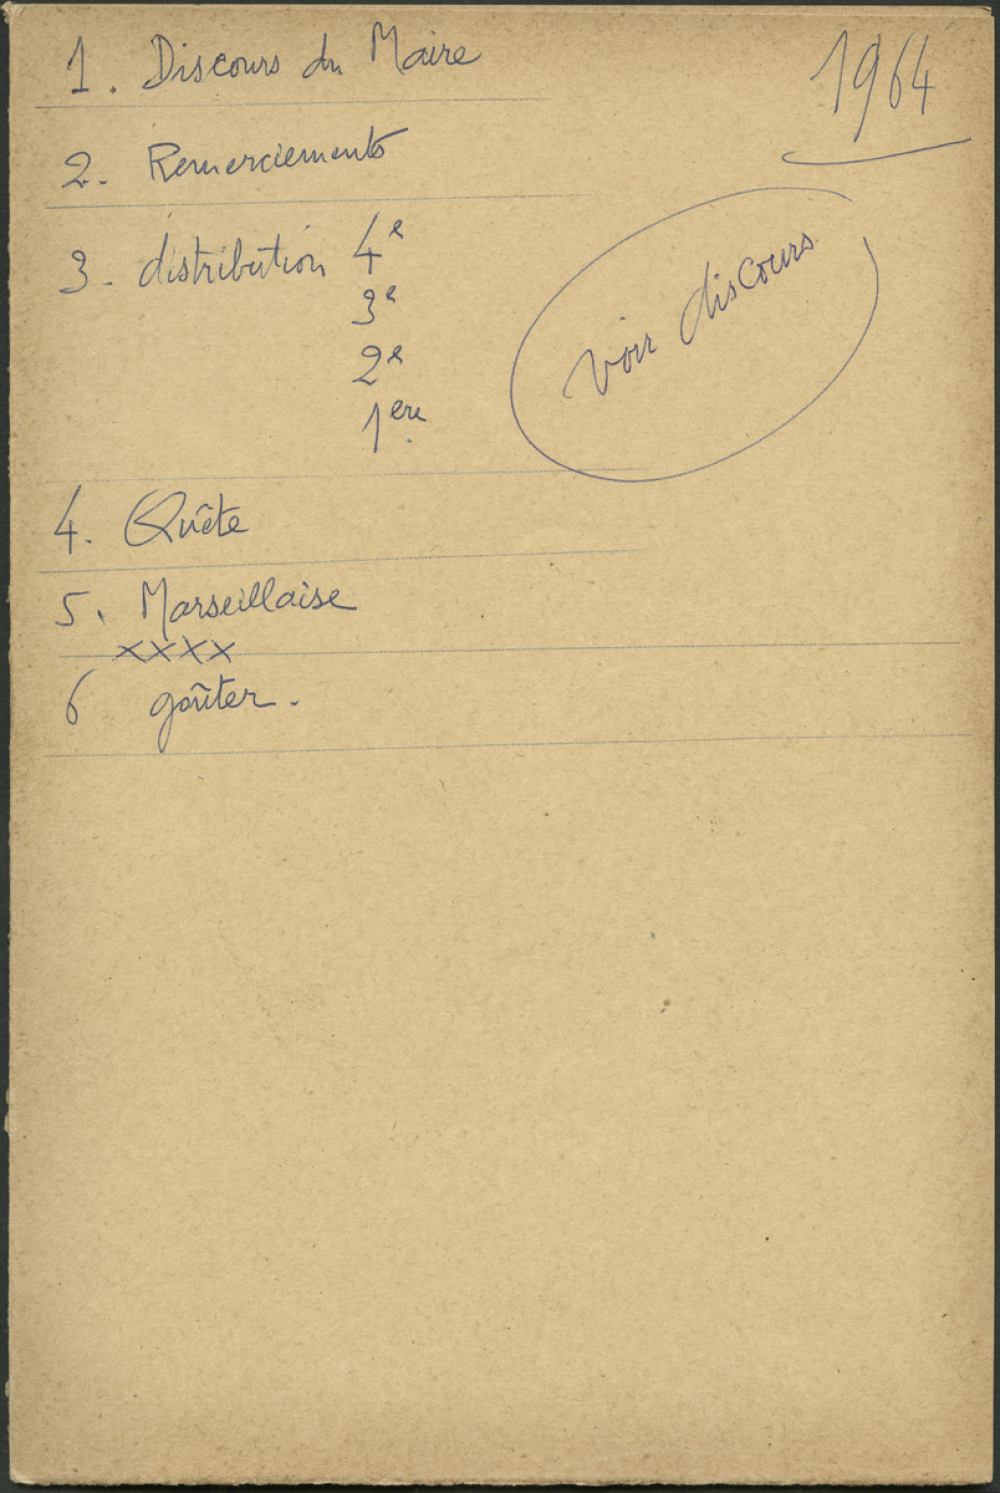 1. Discours du Maire
1964
2. Remerciements
3. distribution 4e
3e
2e
1ere
voir discours
4. Quête
5. Marseillaise
xxxx
6 goûter.